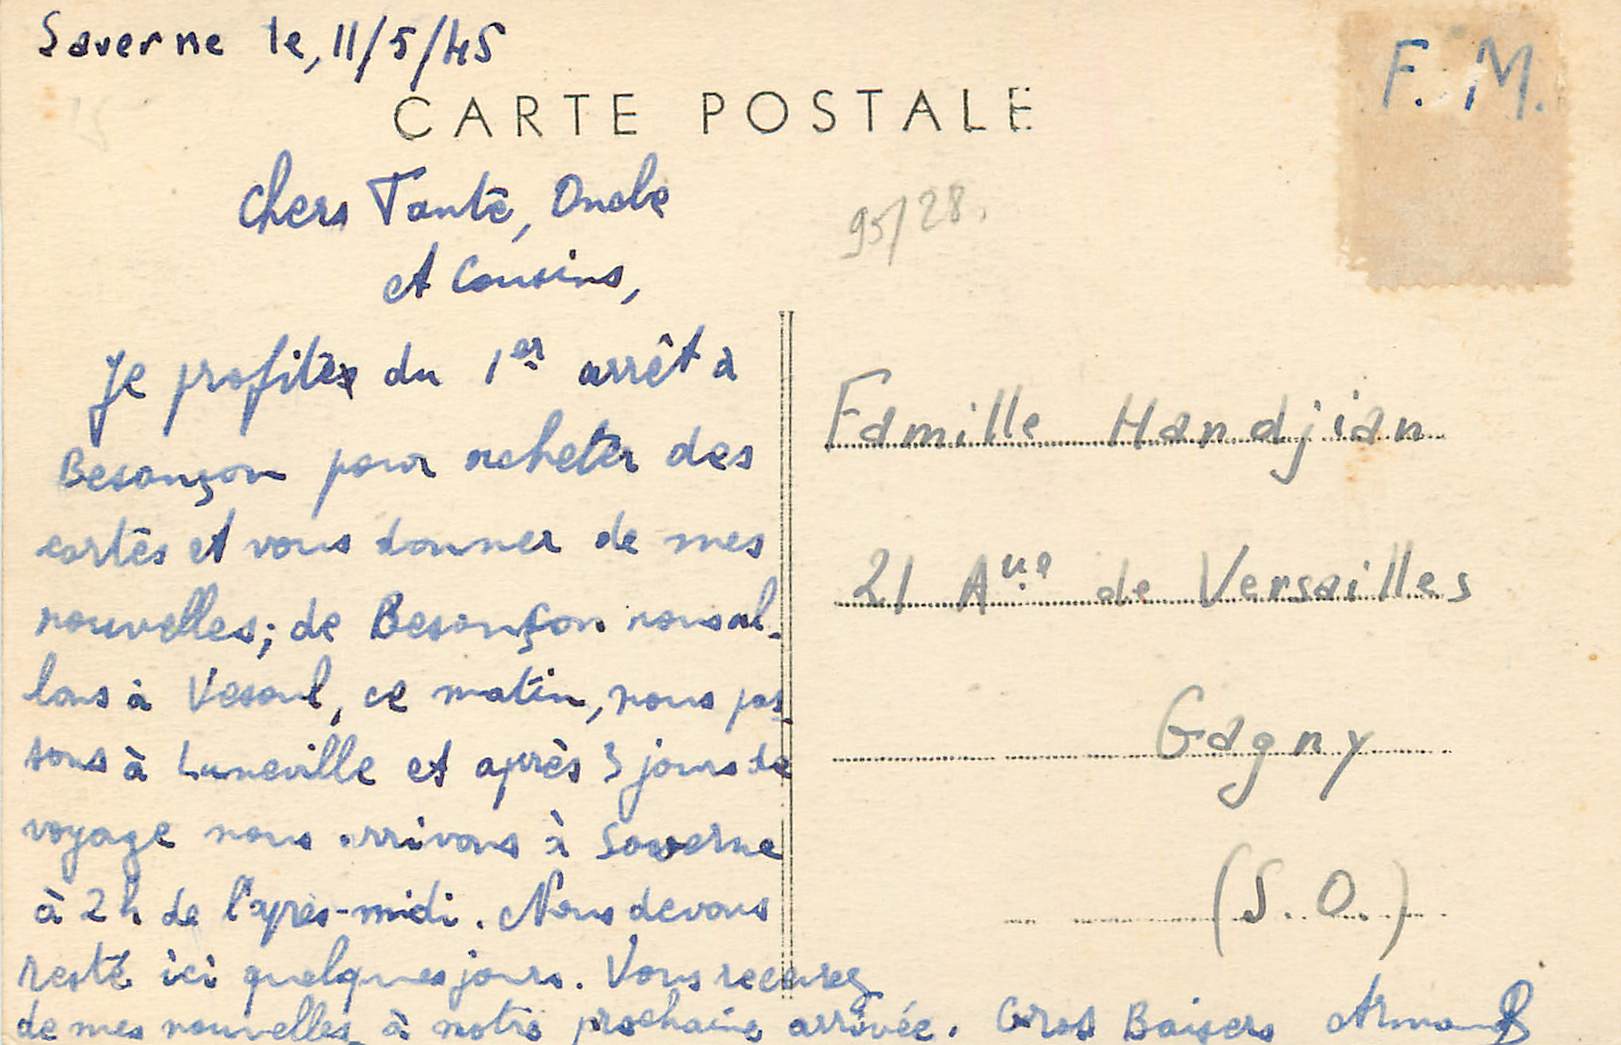 Saverne le, 11/5/45
F. M.
CARTE POSTALE
95/28.
Chers Tante, Oncle
et Cousins,
Je profite du 1er arrêt à
Besançon pour acheter des
cartes et vous donner de mes
nouvelles; de Besançon nous al-
lons à Vesoul, ce matin, nous pas-
sons à Luneville et après 3 jours de
voyage nous arrivons à Saverne
à 2h de l'après-midi. Nous devons
resté ici quelques jours. Vous recevrez
de mes nouvelles à notre prochaine arrivée. Gros Baisers Armand
Famille Handjian
21 Aue de Versailles
Gagny
(S. O.)